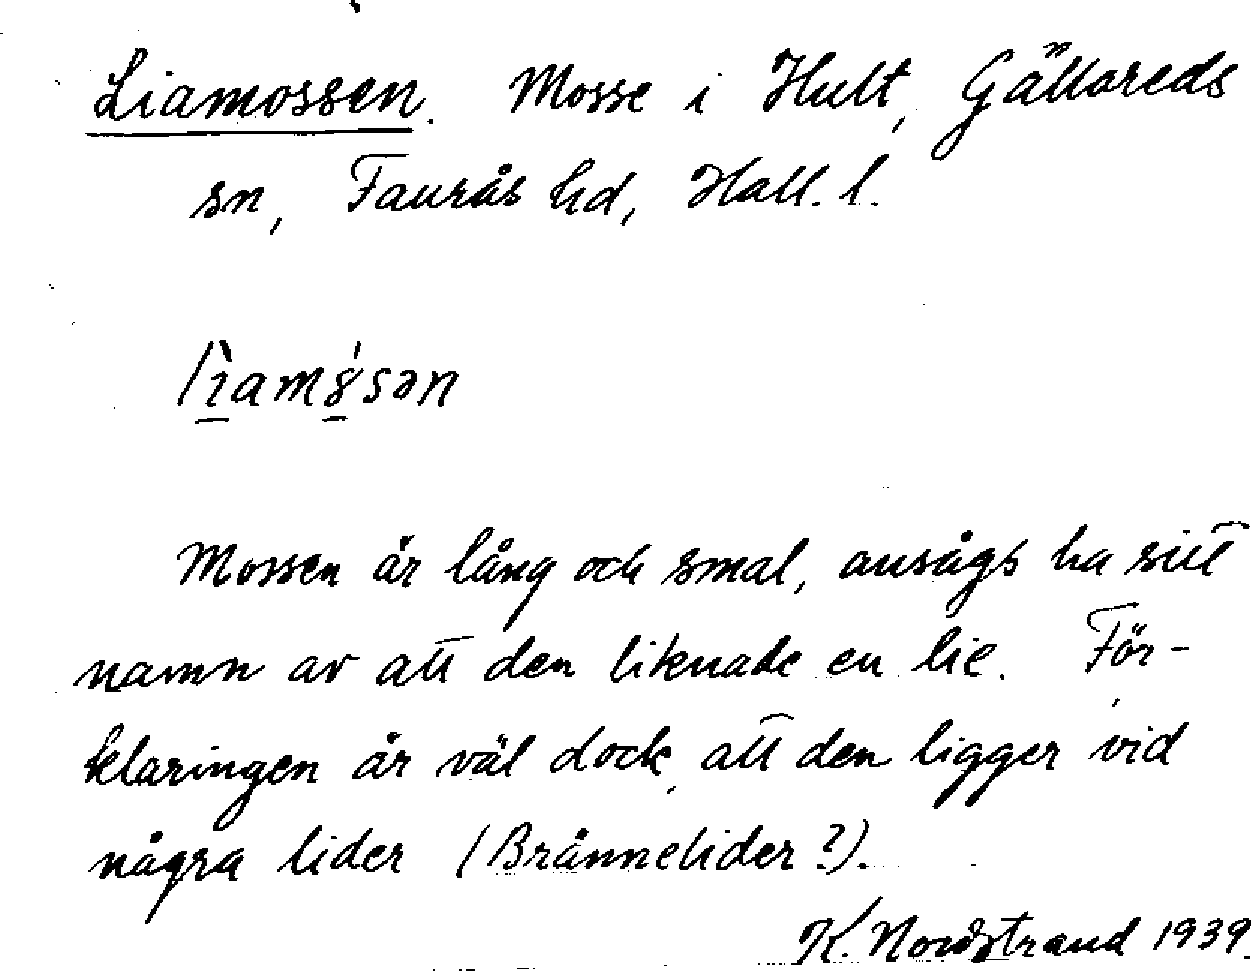 Liamossen. Mosse i Hult, Gällareds
sn, Faurås hd, Hall. l.
lìamó̱sən
Mossen är lång och smal, ansågs ha sitt
namn av att den liknade en lie. För-
klaringen är väl dock, att den ligger vid
några lider (Brännelider?).
K. Nordstrand 1939